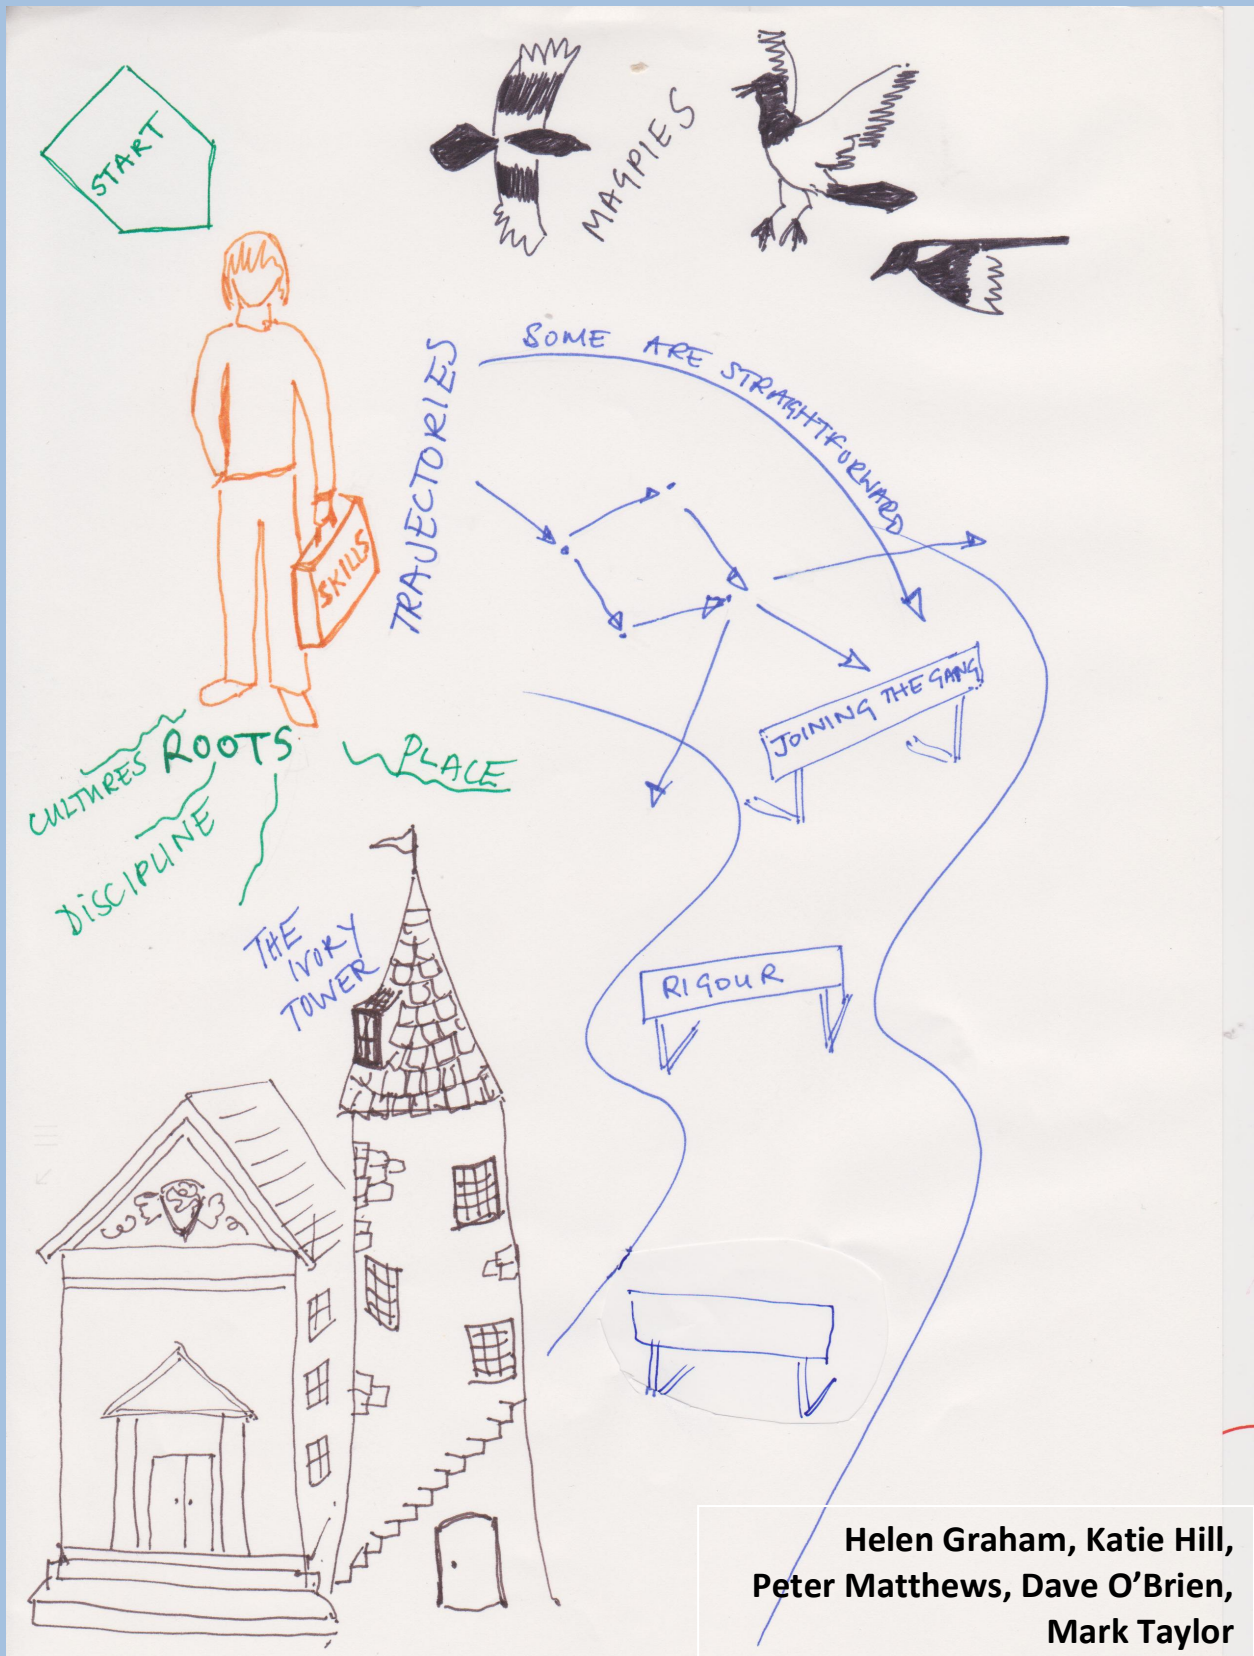 START
MAGPIES
SOME ARE STRAGHTFORWARD
TRAJECTORIES
SKILLS
JOINING THE GANG
CULTURES
ROOTS
PLACE
DISCIPLINE
THE
IVORY
TOWER
RIGOUR
Helen Graham, Katie Hill,
Peter Matthews, Dave O’Brien,
Mark Taylor